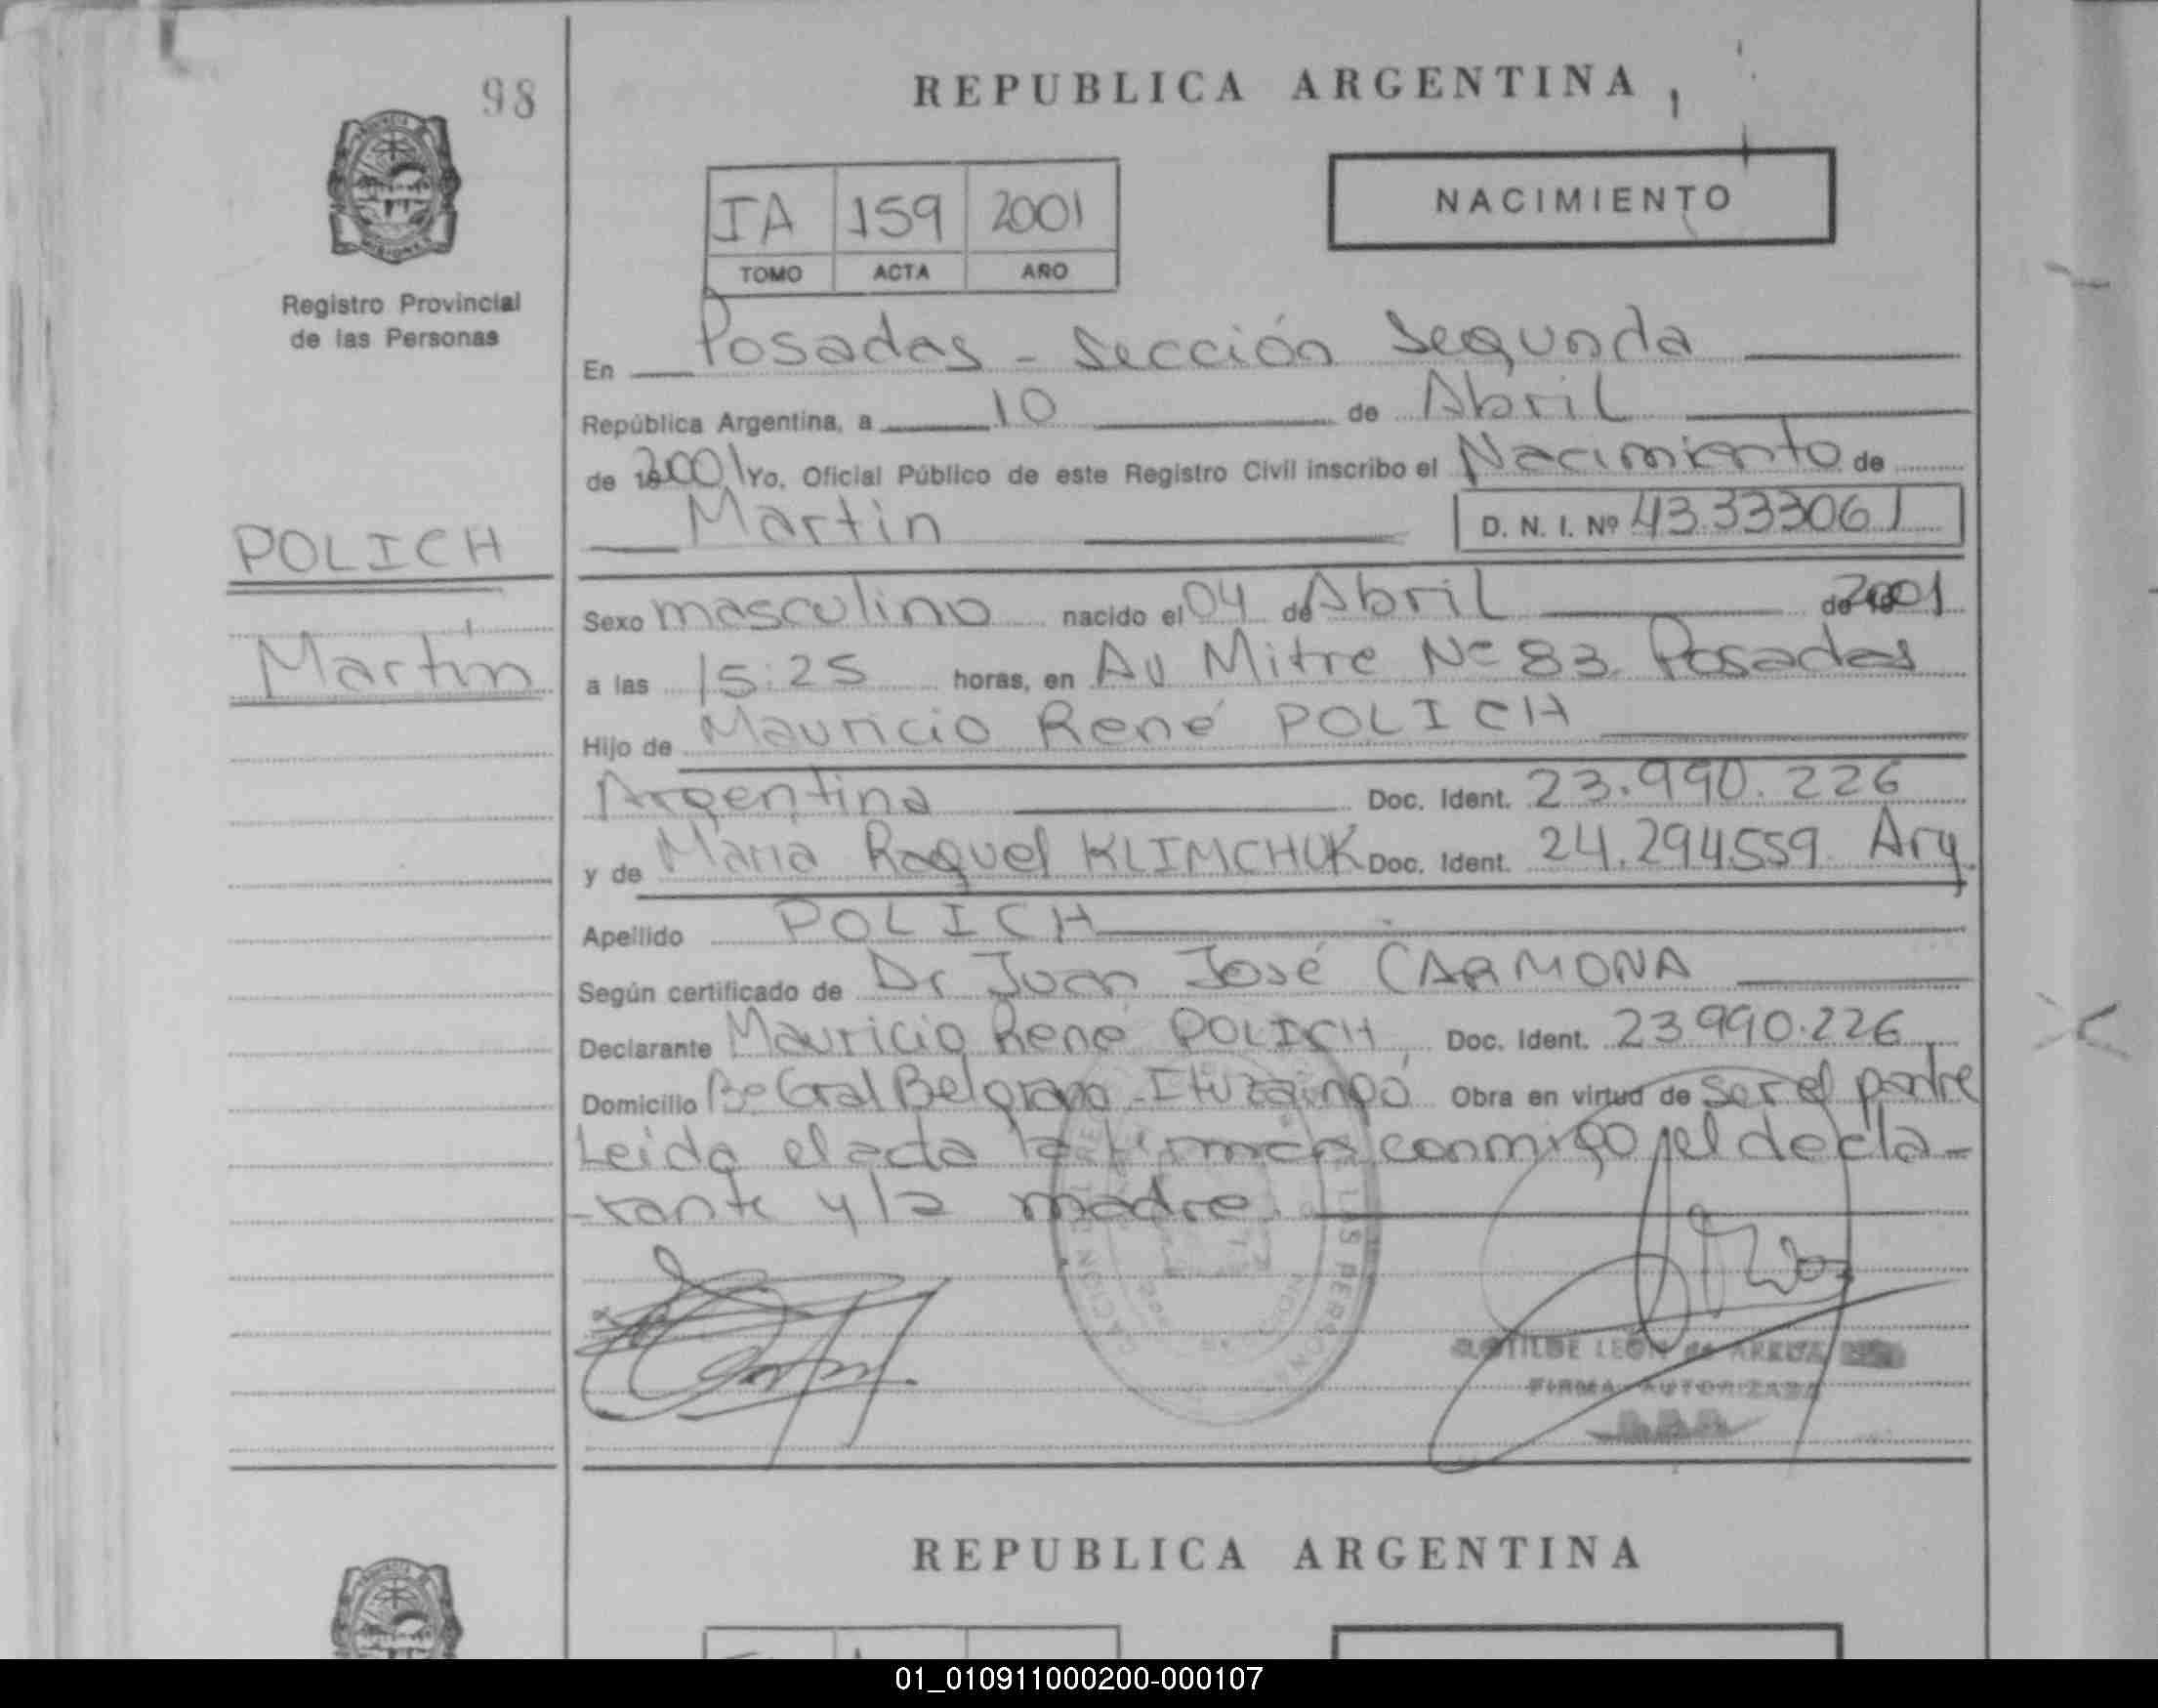 98
REPUBLICA ARGENTINA
NACIMIENTO
IA 159 2001
TOMO ACTA AÑO
Registro Provincial
de las Personas
En Posadas - Sección Segunda
República Argentina, a 10 de Abril
de 2001 Yo, Oficial Público de este Registro Civil inscribo el Nacimiento de
Martin D. N. I. Nº 43.333061
POLICH
Martín
Sexo masculino nacido el 04 de Abril de 2001
a las 15:25 horas, en Av Mitre Nº 83 Posadas
Hijo de Mauricio René POLICH
Argentina Doc. Ident. 23.990.226
y de Maria Raquel KLIMCHUK Doc. Ident. 24.294.559 Arg.
Apellido POLICH
Según certificado de Dr Juan José CARMONA
Declarante Mauricio René POLICH, Doc. Ident. 23.990.226
Domicilio Bº Gral Belgrano - Ituzaingó Obra en virtud de ser el padre
Leida el acta la firman conmigo, el decla-
-rante y la madre.
LAS PERSONAS
CLOTILDE LEON de
FIRMA AUTORIZADA
REPUBLICA ARGENTINA
01_010911000200-000107